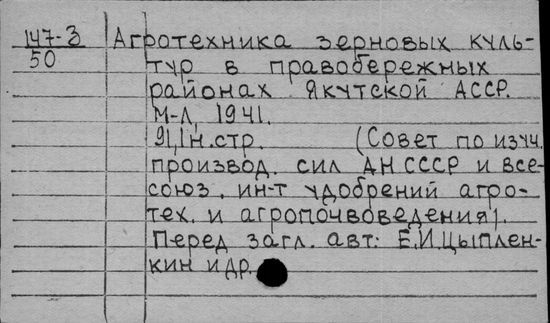 147-3
50
Агротехника зерновых куль-
тур в правобережных
районах Якутской АССР.
М-Л, 1941.
91,1н.стр. (Совет по изуч.
производ. сил АН СССР и все-
союз. ин-т удобрений агро-
тех. и агропочвоведения).
Перед загл. авт: Е.И.Цыплен-
кин и др.